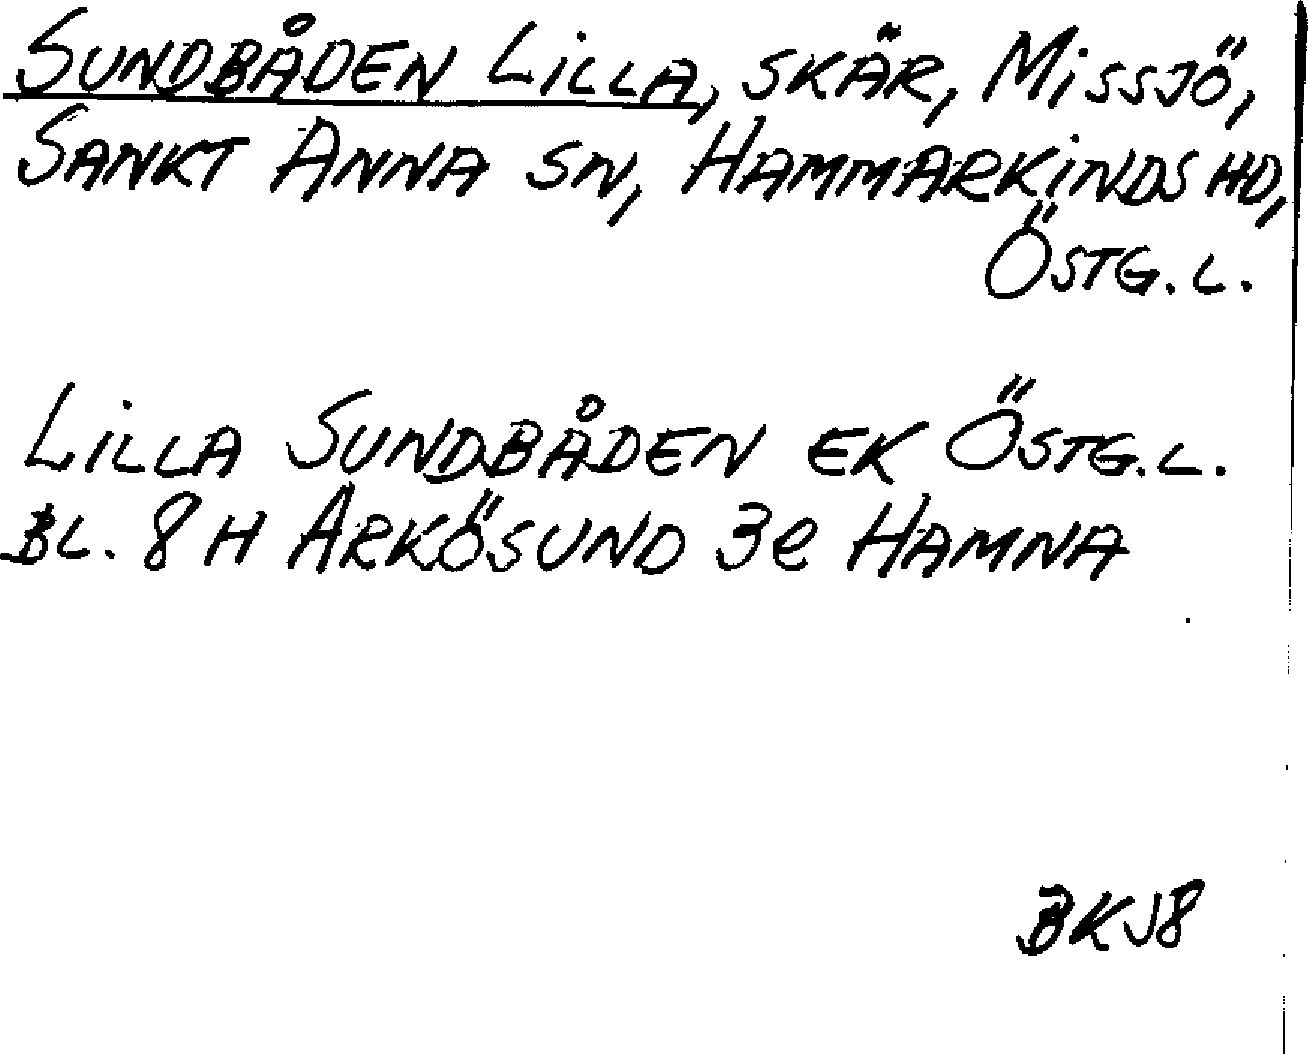 SUNDBÅDEN LILLA, SKÄR, MISSJÖ,
SANKT ANNA SN, HAMMARKINDS HD,
ÖSTG.L.
LILLA SUNDBÅDEN EK ÖSTG.L.
BL. 8H ARKÖSUND 3e HAMNA
BKJ8